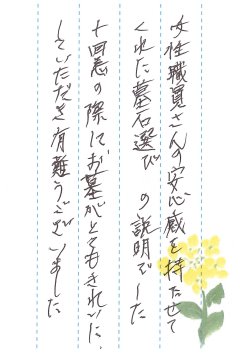 女性職員さんの安心感を持たせて
くれた墓石選び の説明でした
十回忌の際にお墓がとてもきれいに
していただき有難うございました